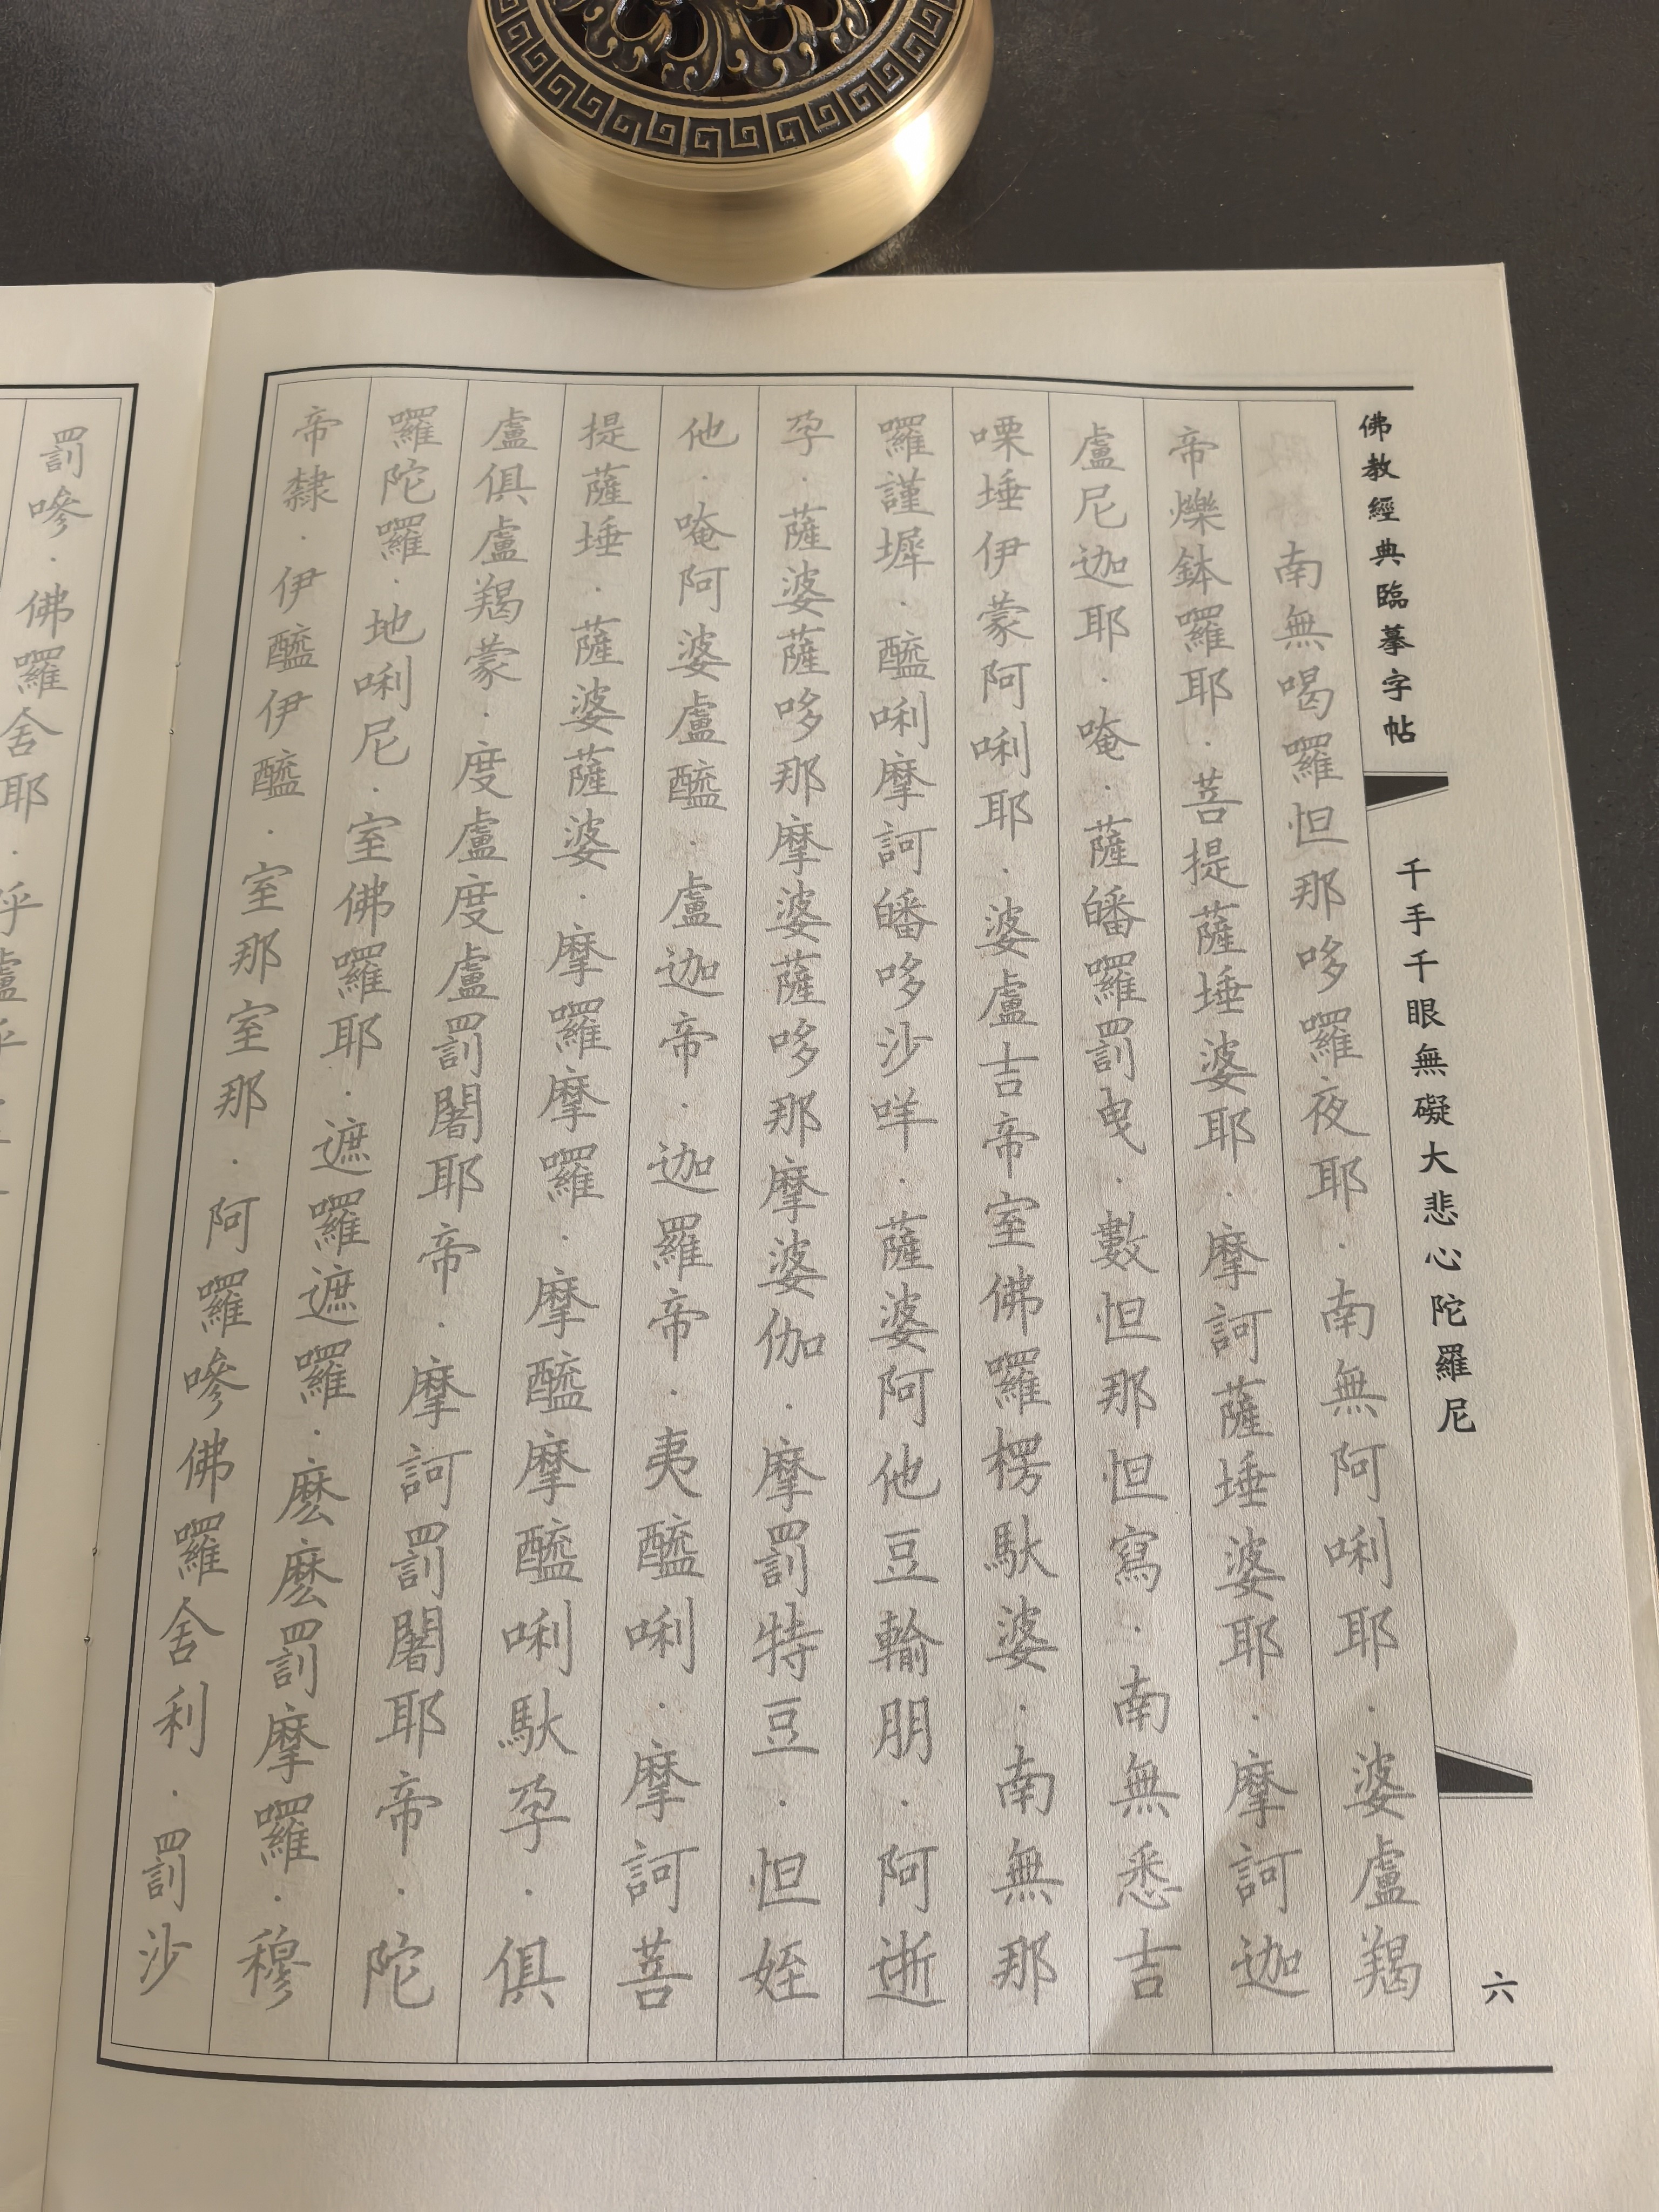 佛教經典臨摹字帖
千手千眼無礙大悲心陀羅尼
六
南無喝囉怛那哆囉夜耶·南無阿唎耶·婆盧羯
帝爍鉢囉耶·菩提薩埵婆耶·摩訶薩埵婆耶·摩訶迦
盧尼迦耶·唵·薩皤囉罰曳·數怛那怛寫·南無悉吉
㗚埵伊蒙阿唎耶·婆盧吉帝室佛囉楞馱婆·南無那
囉謹墀·醯唎摩訶皤哆沙咩·薩婆阿他豆輸朋·阿逝
孕·薩婆薩哆那摩婆薩哆那摩婆伽·摩罰特豆·怛姪
他·唵阿婆盧醯·盧迦帝·迦羅帝·夷醯唎·摩訶菩
提薩埵·薩婆薩婆·摩囉摩囉·摩醯摩醯唎馱孕·俱
盧俱盧羯蒙·度盧度盧罰闍耶帝·摩訶罰闍耶帝·陀
囉陀囉·地唎尼·室佛囉耶·遮囉遮囉·麽麽罰摩囉·穆
帝隸·伊醯伊醯·室那室那·阿囉嘇佛囉舍利·罰沙
罰嘇·佛囉舍耶·呼盧